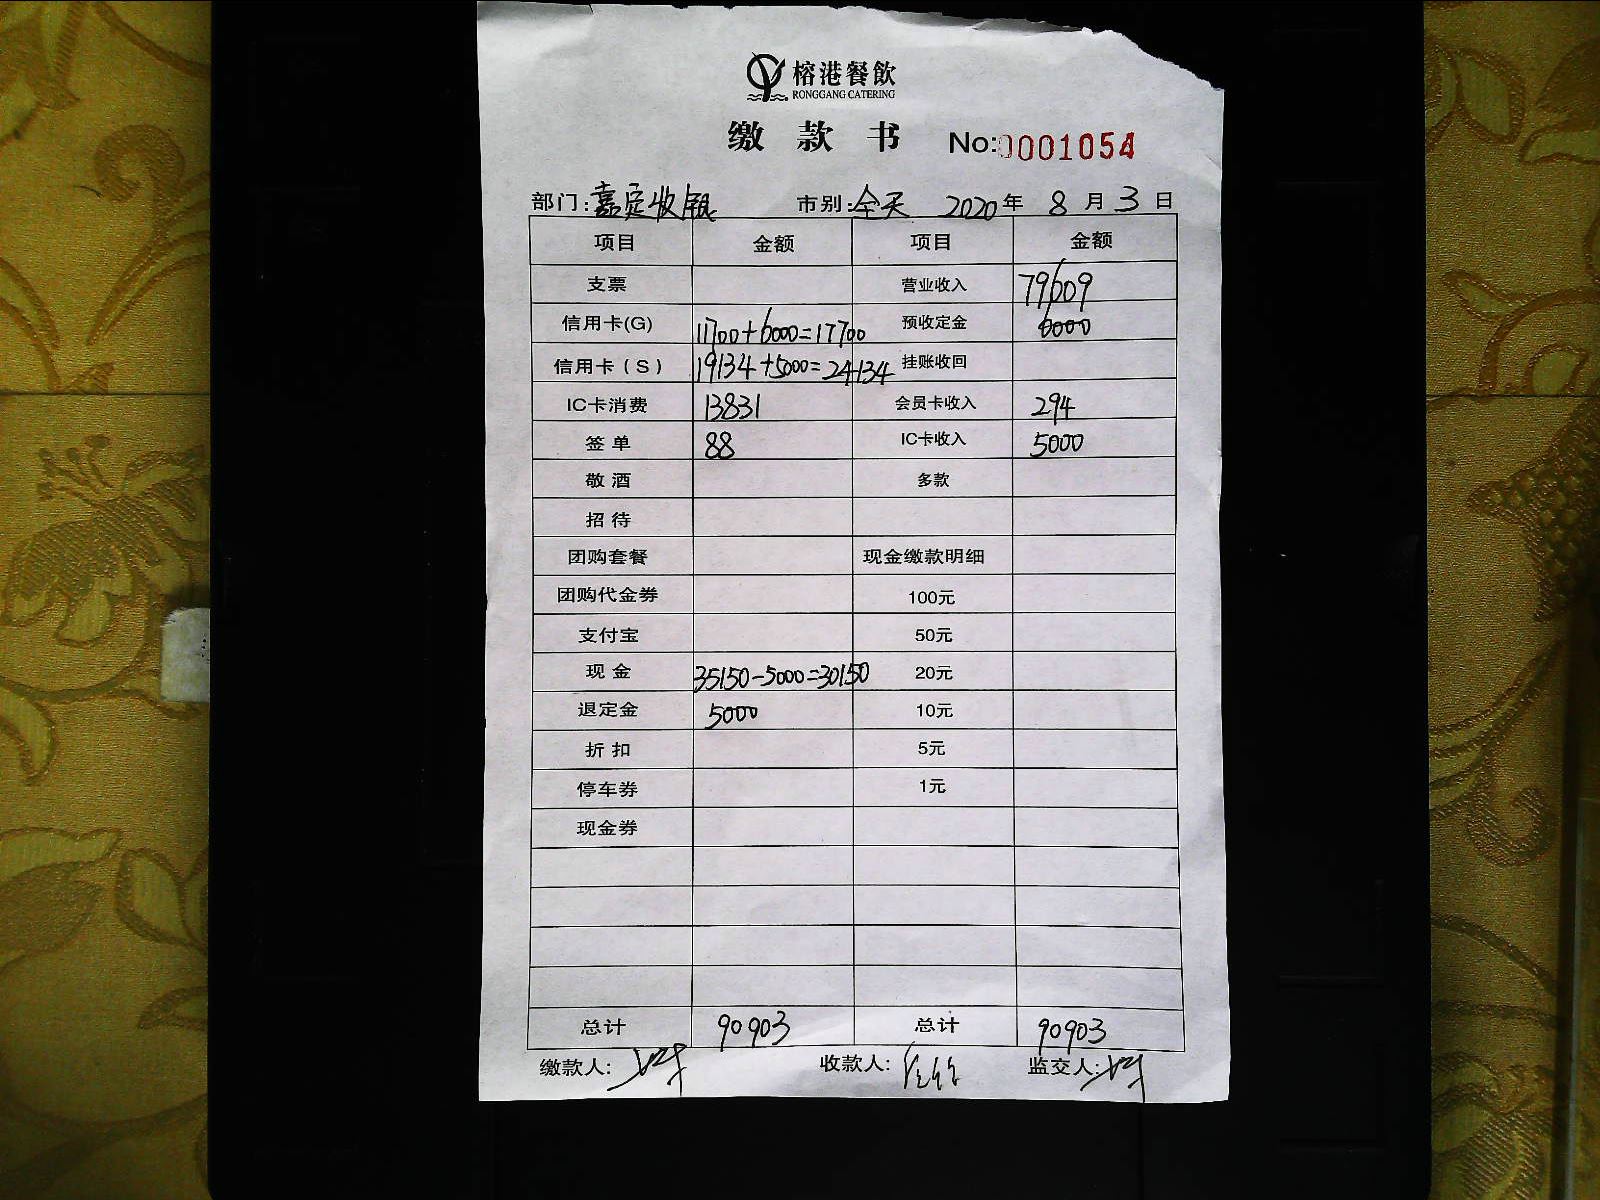 榕港餐飲
RONGGANG CATERING
缴款书 No:0001054
部门:嘉定收银 市别:全天 2020年8月3日
项目 金额 项目 金额
支票 营业收入 79609
信用卡(G) 11700+6000=17700 预收定金 6000
信用卡(S) 19134+5000=24134 挂账收回
IC卡消费 13831 会员卡收入 294
签单 88 IC卡收入 5000
敬酒 多款
招待
团购套餐 现金缴款明细
团购代金券 100元
支付宝 50元
现金 35150-5000=30150 20元
退定金 5000 10元
折扣 5元
停车券 1元
现金券
总计 90903 总计 90903
缴款人: 收款人: 监交人: